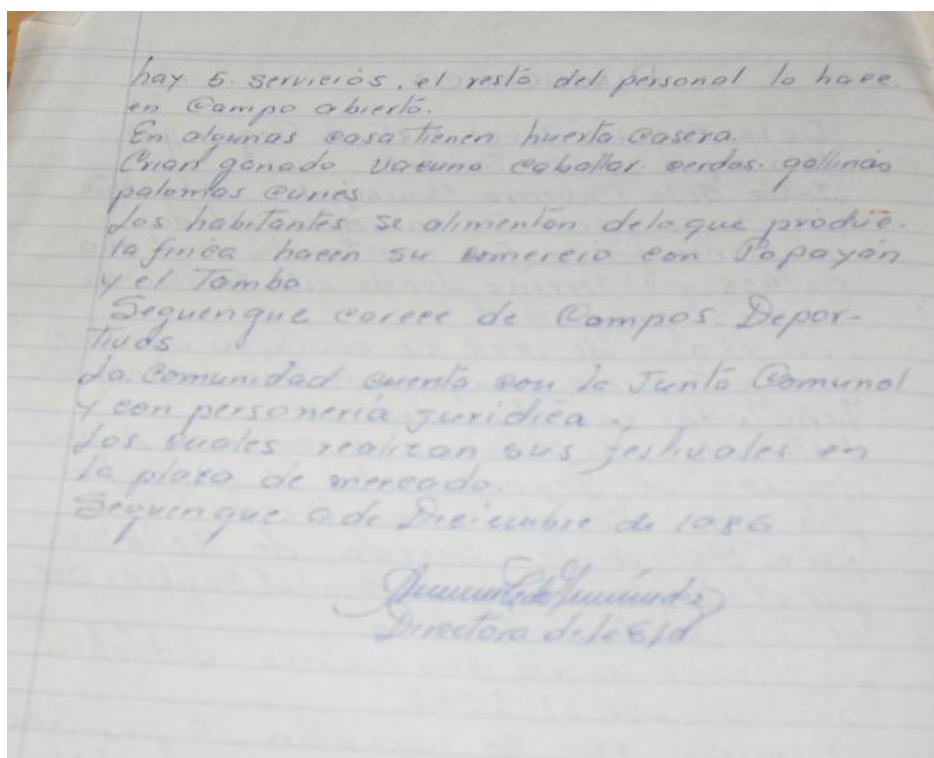 hay 5. servicios. el resto del personal lo hace.
en Campo abierto.
En algunas casa tienen huerta casera.
Crian ganado vacuno caballar. cerdos. gallinas
palomas curies
Los habitantes se alimentan de lo que produce.
la finca hacen su comercio con Popayán
y el Tambo
Seguengue carece de Campos Depor-
tivos
La Comunidad cuenta con la Junta Comunal
y con personería jurídica.
Los cuales realizan sus festivales en
la plaza de mercado.
Seguengue. de Diciembre de 1986
Directora de la